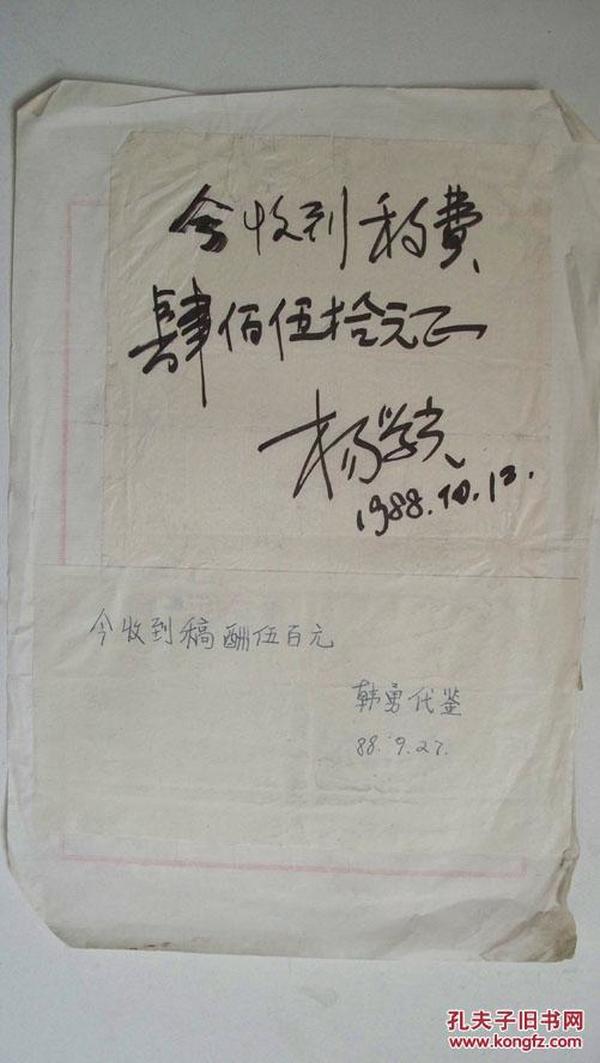 今收到稿费
肆佰伍拾元正
杨学光
1988.10.12.
今收到稿酬伍百元
韩勇代鉴
88.9.27.
孔夫子旧书网
www.kongfz.com